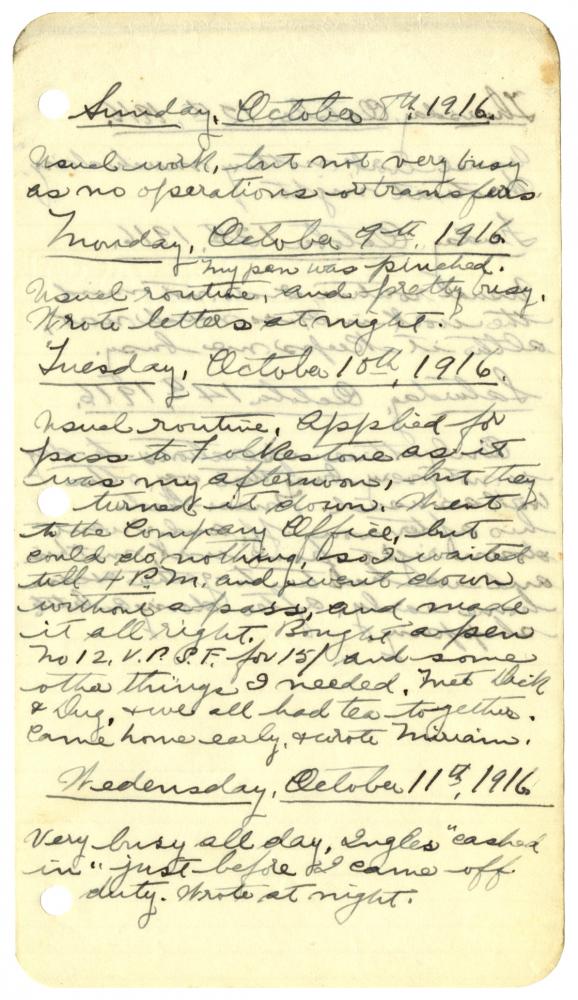 Sunday, October 8th, 1916.
Usual work, but not very busy
as no operations or transfers.
Monday, October 9th, 1916.
My pen was pinched.
Usual routine, and pretty busy.
Wrote letters at night.
Tuesday, October 10th, 1916.
Usual routine. Applied for
pass to Folkestone as it
was my afternoon, but they
turned it down. Went
to the Company Office, but
could do nothing, so I waited
till 4 P.M. and went down
without a pass, and made
it all right. Bought a pen
No 12. V.P.S.F. for 15/ and some
other things I needed. Met Dick
& Dug, & we all had tea together.
Came home early, & wrote Miriam.
Wedensday, October 11th, 1916.
Very busy all day, Ingles "cashed
in" just before I came off
duty. Wrote at night.